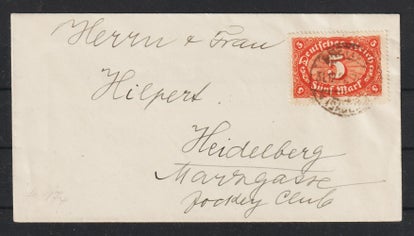 Herrn & Frau
Hilpert.
Heidelberg
Marzgasse
Jockey Club
5 Deutsches Reich 5
5
5 Fünf Mark 5